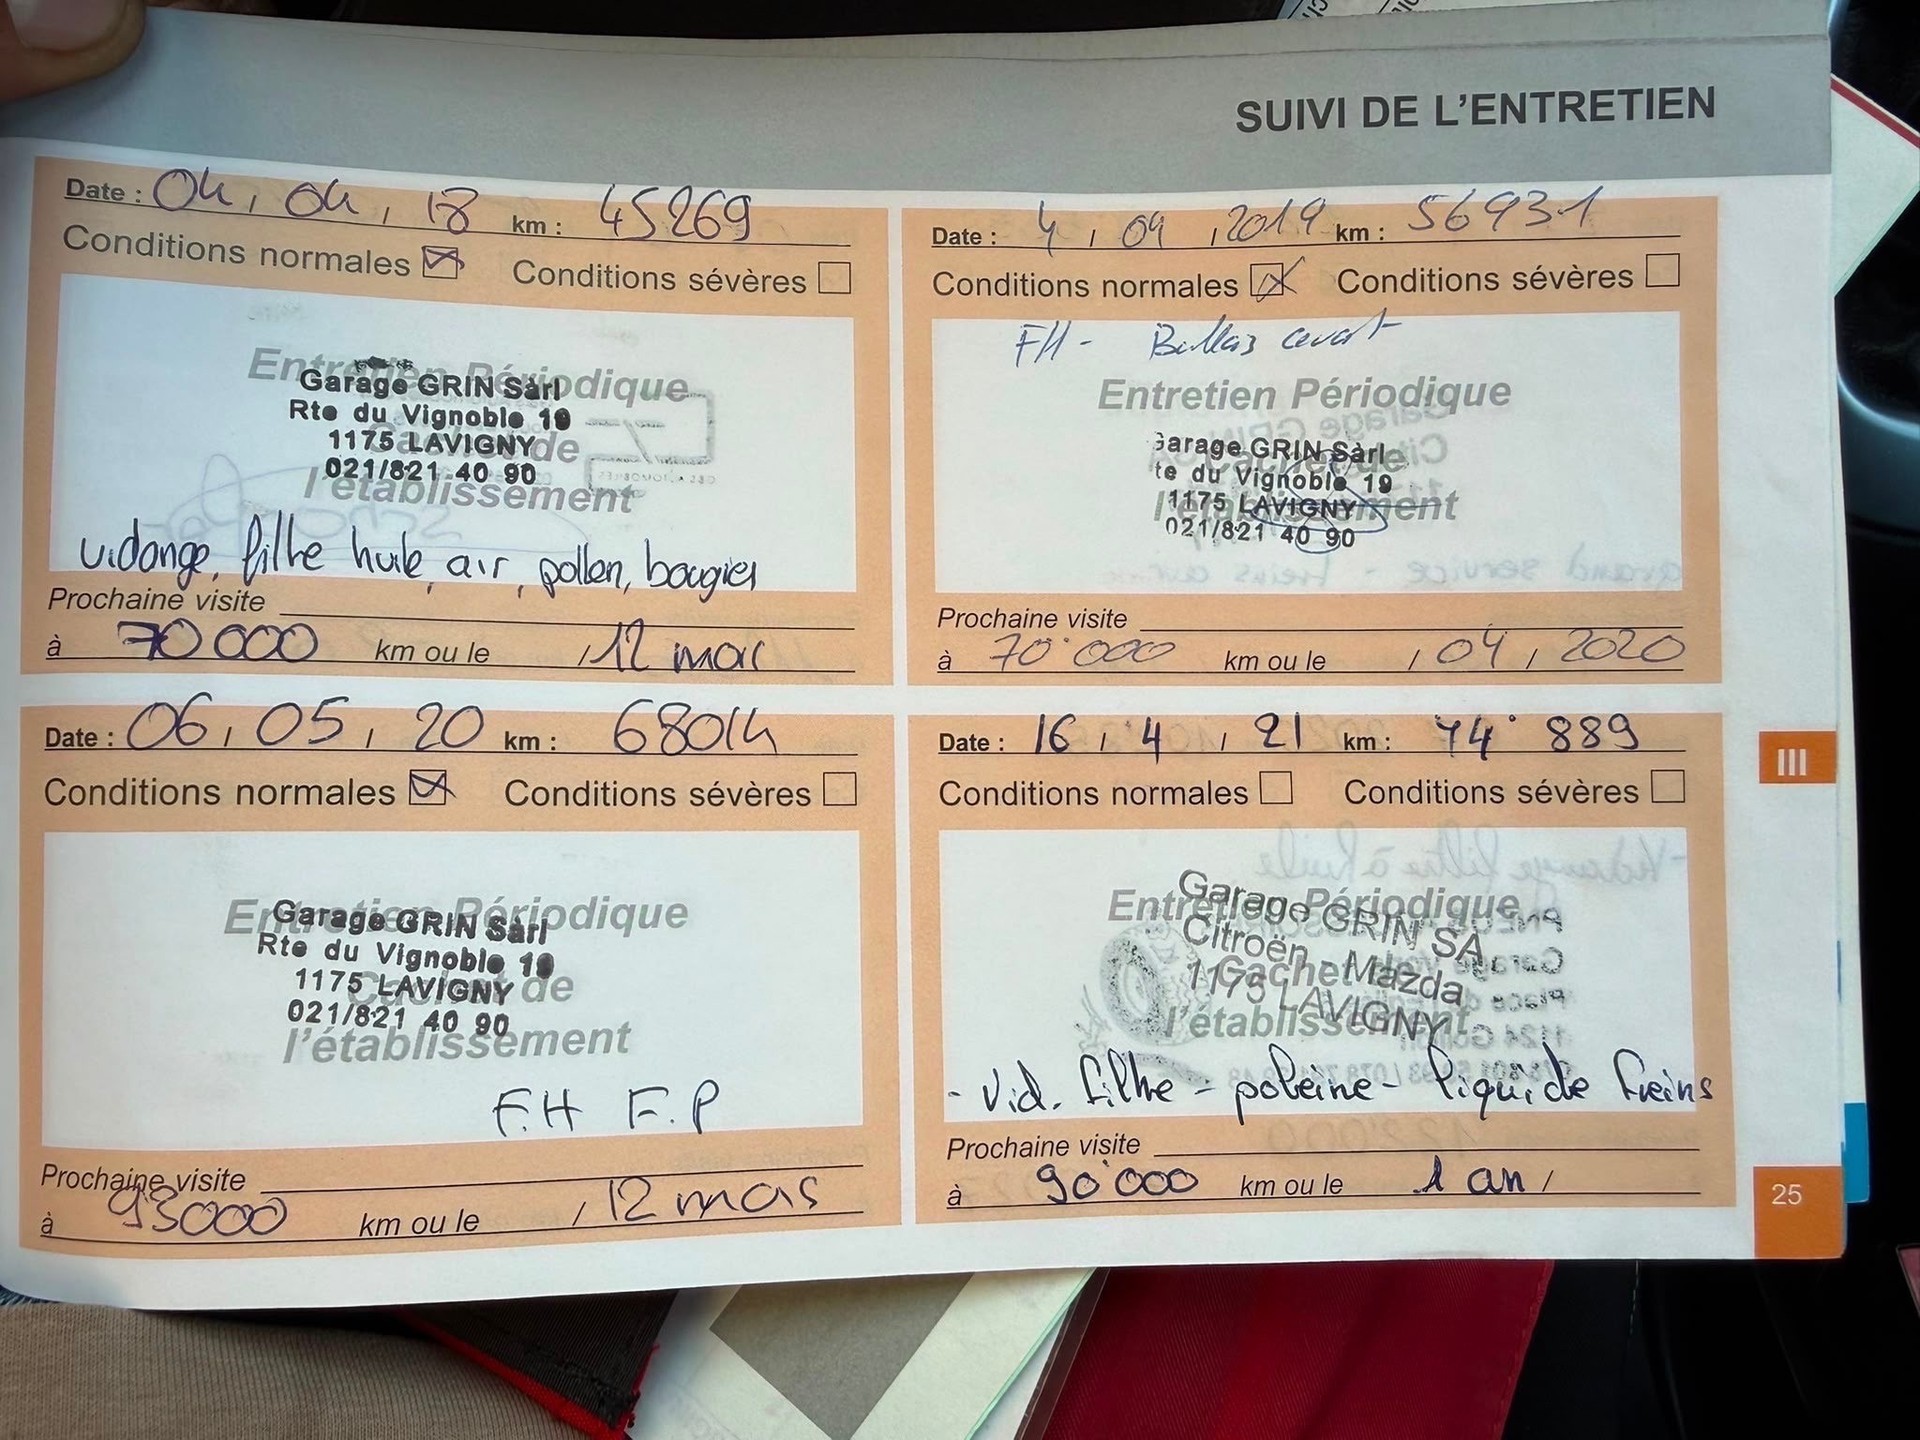 SUIVI DE L'ENTRETIEN
Date : 04, 04, 18 km : 45269
Conditions normales Conditions sévères
Entretien Périodique
Cachet de
l'établissement
Garage GRIN Sàrl
Rte du Vignoble 19
1175 LAVIGNY
021/821 40 90
vidange, filtre huile, air, pollen, bougies
Prochaine visite
à 70000 km ou le / 12 mois
Date : 4, 04, 2019 km : 56931
Conditions normales Conditions sévères
FH - avant
Entretien Périodique
Cachet de
l'établissement
Garage GRIN Sàrl
te du Vignoble 19
1175 LAVIGNY
021/821 40 90
Prochaine visite
à 70'000 km ou le / 04 / 2020
Date : 06, 05, 20 km : 68014
Conditions normales Conditions sévères
Entretien Périodique
Cachet de
l'établissement
Garage GRIN Sàrl
Rte du Vignoble 19
1175 LAVIGNY
021/821 40 90
F.H F.P
Prochaine visite
à 93000 km ou le / 12 mois
Date : 16, 4, 21 km : 74'889
Conditions normales Conditions sévères
Entretien Périodique
Cachet de
l'établissement
Garage GRIN SA
Citroën - Mazda
1175 LAVIGNY
- Vid. filtre - poleine - liquide freins
Prochaine visite
à 90'000 km ou le 1 an /
III
25